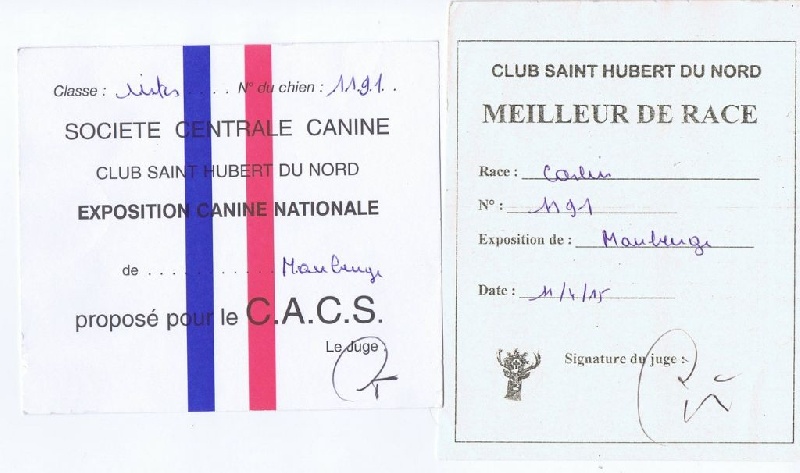 Classe : .... N° du chien : 1191..
SOCIETE CENTRALE CANINE
CLUB SAINT HUBERT DU NORD
EXPOSITION CANINE NATIONALE
de ............ Maubeuge
proposé pour le C.A.C.S.
Le Juge :
CLUB SAINT HUBERT DU NORD
MEILLEUR DE RACE
Race : Carlin
N° : 1191
Exposition de : Maubeuge
Date : 11/4/15
Signature du juge :